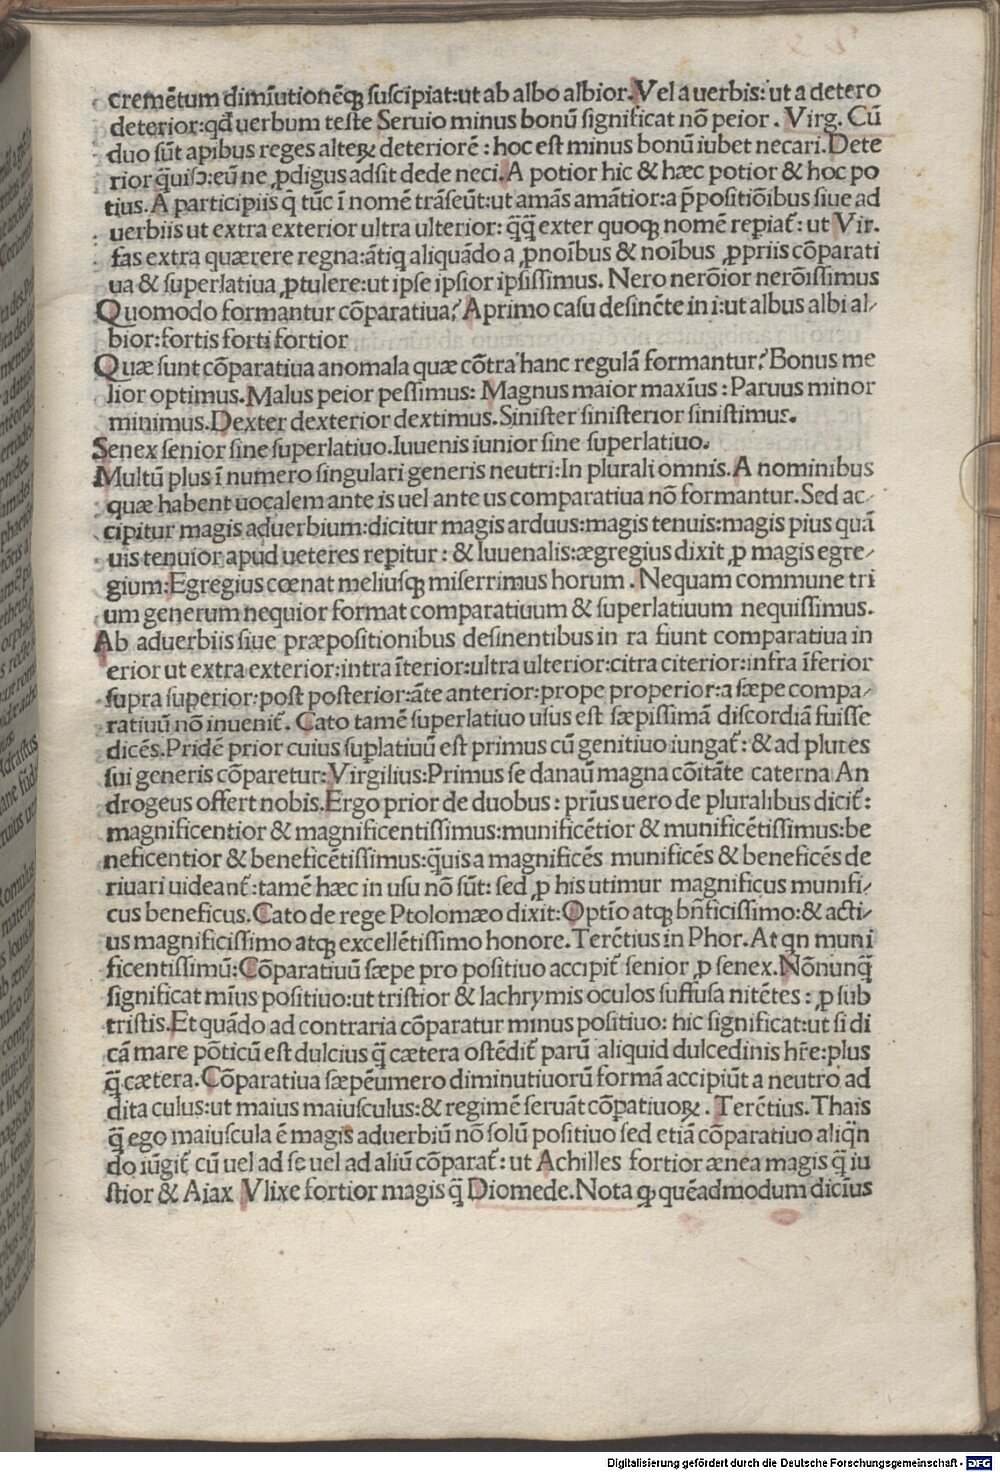 cremẽtum dimĩutionẽqꝫ ſuſcipiat:ut ab albo albior.Vel a uerbis:ut a detero
deterior:qđ uerbum teſte Seruio minus bonũ ſignificat nõ peior . Virg. Cũ
duo ſũt apibus reges alteꝝ deteriorẽ : hoc eſt minus bonũ iubet necari.Dete
rior q̃ uiſↄ:eũ ne ꝓdigus adſit dede neci.A potior hic & hæc potior & hoc po
tius.A participiis q̃ tũc ĩ nomẽ trãſeũt:ut amãs amãtior:a p̃poſitiõibus ſiue ad
uerbiis ut extra exterior ultra ulterior: q̃q̃ exter quoqꝫ nomẽ repiat᷑ : ut Vir.
fas extra quærere regna:ãtiq aliquãdo a ꝓnoĩbus & noĩbus ꝓpriis cõparati
ua & ſuperlatiua ꝓtulere:ut ipſe ipſior ipſiſſimus. Nero nerõior nerõiſſimus
Quomodo formantur cõparatiua? A primo caſu deſinẽte in i:ut albus albi al⸗
bior:fortis forti fortior
Quæ ſunt cõparatiua anomala quæ cõtra hanc regulã formantur? Bonus me
lior optimus.Malus peior peſſimus: Magnus maior maxĩus : Paruus minor
minimus.Dexter dexterior dextimus.Siniſter siniſterior siniſtimus.
Senex ſenior ſine ſuperlatiuo.Iuuenis iunior ſine ſuperlatiuo.
Multũ plus ĩ numero ſingulari generis neutri:In plurali omnis.A nominibus
quæ habent uocalem ante is uel ante us comparatiua nõ formantur.Sed ac⸗
cipitur magis aduerbium:dicitur magis arduus:magis tenuis:magis pius quã
uis tenuior apud ueteres repitur : & Iuuenalis:ægregius dixit ꝓ magis egre⸗
gium:Egregius cœnat meliuſqꝫ miſerrimus horum . Nequam commune tri
um generum nequior format comparatiuum & ſuperlatiuum nequiſſimus.
Ab aduerbiis ſiue præpoſitionibus deſinentibus in ra fiunt comparatiua in
erior ut extra exterior:intra ĩterior:ultra ulterior:citra citerior:infra ĩferior
ſupra ſuperior:poſt poſterior:ãte anterior:prope properior:a ſæpe compa⸗
ratiuũ nõ inuenit᷑. Cato tamẽ ſuperlatiuo uſus eſt ſæpiſſimã diſcordiã fuiſſe
dicẽs.Pridẽ prior cuius ſuplatiuũ eſt primus cũ genitiuo iungat᷑ : & ad plures
ſui generis cõparetur:Virgilius:Primus ſe danaũ magna cõitãte caterna An
drogeus offert nobis.Ergo prior de duobus : prĩus uero de pluralibus dicit᷑:
magnificentior & magnificentiſſimus:munificẽtior & munificẽtiſſimus:be
neficentior & beneficẽtiſſimus:q̃uis a magnificẽs munificẽs & beneficẽs de
riuari uideant᷑ :tamẽ hæc in uſu nõ ſũt: ſed ꝓ his utimur magnificus munifi⸗
cus beneficus.Cato de rege Ptolomæo dixit:Optĩo atqꝫ bñficiſſimo:& acti⸗
us magnificiſſimo atqꝫ excellẽtiſſimo honore.Terẽtius in Phor.At qn muni
ficentiſſimũ:Cõparatiuũ ſæpe pro poſitiuo accipit᷑ ſenior ꝓ ſenex.Nõnunq̃
ſignificat mĩus poſitiuo:ut triſtior & lachrymis oculos ſuffuſa nitẽtes : ꝓ ſub
triſtis.Et quãdo ad contraria cõparatur minus poſitiuo: hic ſignificat:ut ſi di
cã mare põticũ eſt dulcius q̃ cætera oſtẽdit᷑ parũ aliquid dulcedinis hr̃e:plus
q̃ cætera.Cõparatiua ſæpẽumero diminutiuorũ formã accipiũt a neutro ad
dita culus:ut maius maiuſculus:& regimẽ ſeruãt cõpatiuoꝝ . Terẽtius.Thais
q̃ ego maiuſcula ẽ magis aduerbiũ nõ ſolũ poſitiuo ſed etiã cõparatiuo aliq̃n
do iũgit᷑ cũ uel ad ſe uel ad aliũ cõparat᷑ : ut Achilles fortior ænea magis q̃ iu
ſtior & Aiax Vlixe fortior magis q̃ Diomede.Nota ꝙ quẽadmodum dicĩus
Digitalisierung gefördert durch die Deutsche Forschungsgemeinschaft - DFG